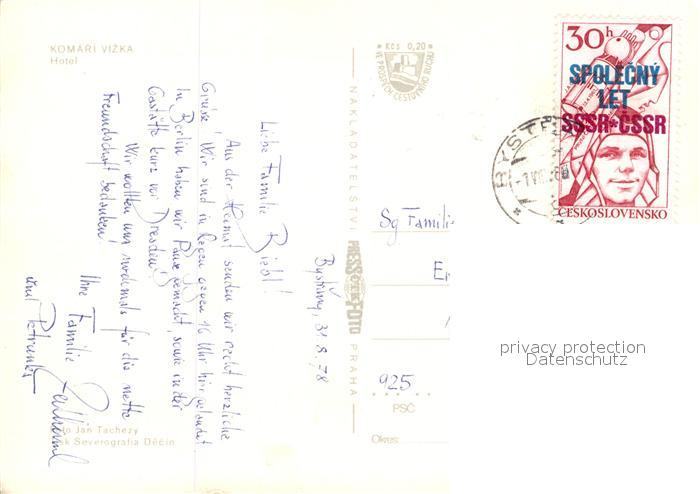 KOMÁŘÍ VÍŽKA
Hotel
Bystřany, 31.8.78
Liebe Familie
Aus der Heimat senden wir recht herzliche
Grüsse! Wir sind in Regen gegen 16 Uhr hier gelandet
In Berlin haben wir Pause gemacht, sowie in der
Gaststätte kurz vor Dresden!
Wir wollten uns nochmals für die nette
Freundschaft bedanken!
Ihre Familie
und
Jan Tachezy
Severografia Děčín
NAKLADATELSTVÍ PRESSFOTO PRAHA
Kčs 0,20
VE PROSPĚCH CESTOVNÍHO RUCHU
30h
SPOLEČNÝ
LET
SSSR*ČSSR
ČESKOSLOVENSKO
BYST
Sg Familie
925
PSČ
Okres:
privacy protection
Datenschutz